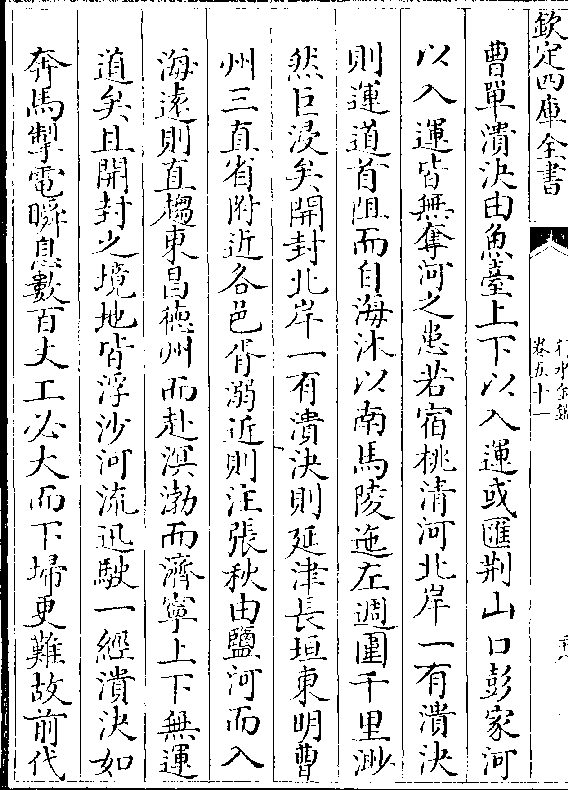 欽定四庫全書
行水金鑑
卷五十一
曹單潰決由魚臺上下以入運或匯荆山口彭家河
以入運皆無奪河之患若宿桃清河北岸一有潰決
則運道首阻而自海沐以南馬陵迤左週圍千里渺
然巨浸矣開封北岸一有潰決則延津長垣東明曹
州三直省附近各邑胥溺近則注張秋由鹽河而入
海遠則直趨東昌德州而赴溟渤而濟寧上下無運
道矣且開封之境地皆浮沙河流迅駛一經潰決如
奔馬掣電瞬息數百丈工必大而下埽更難故前代